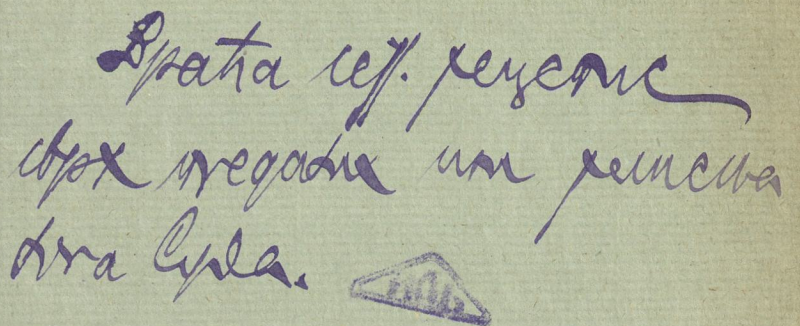 Враћа се рецепис
сврх предатих им решења
Суда.